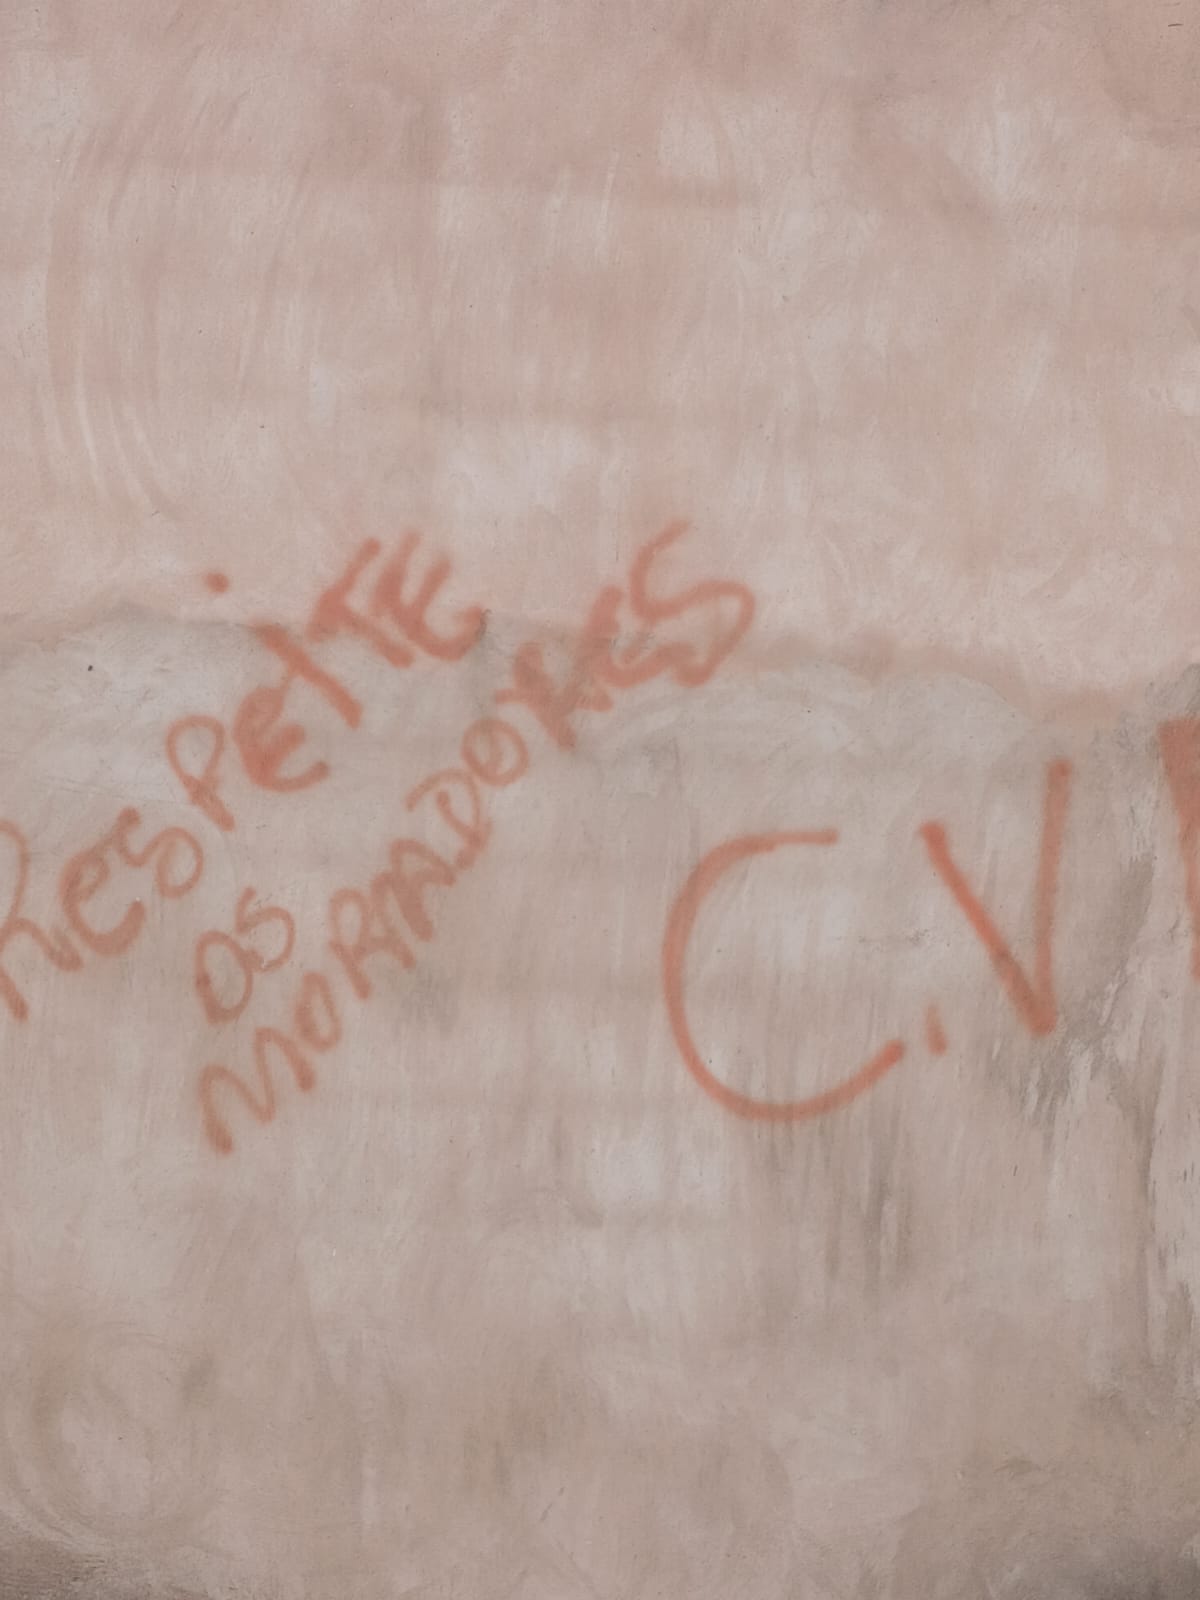 ResPeiTE
OS
MORADORES
C.V